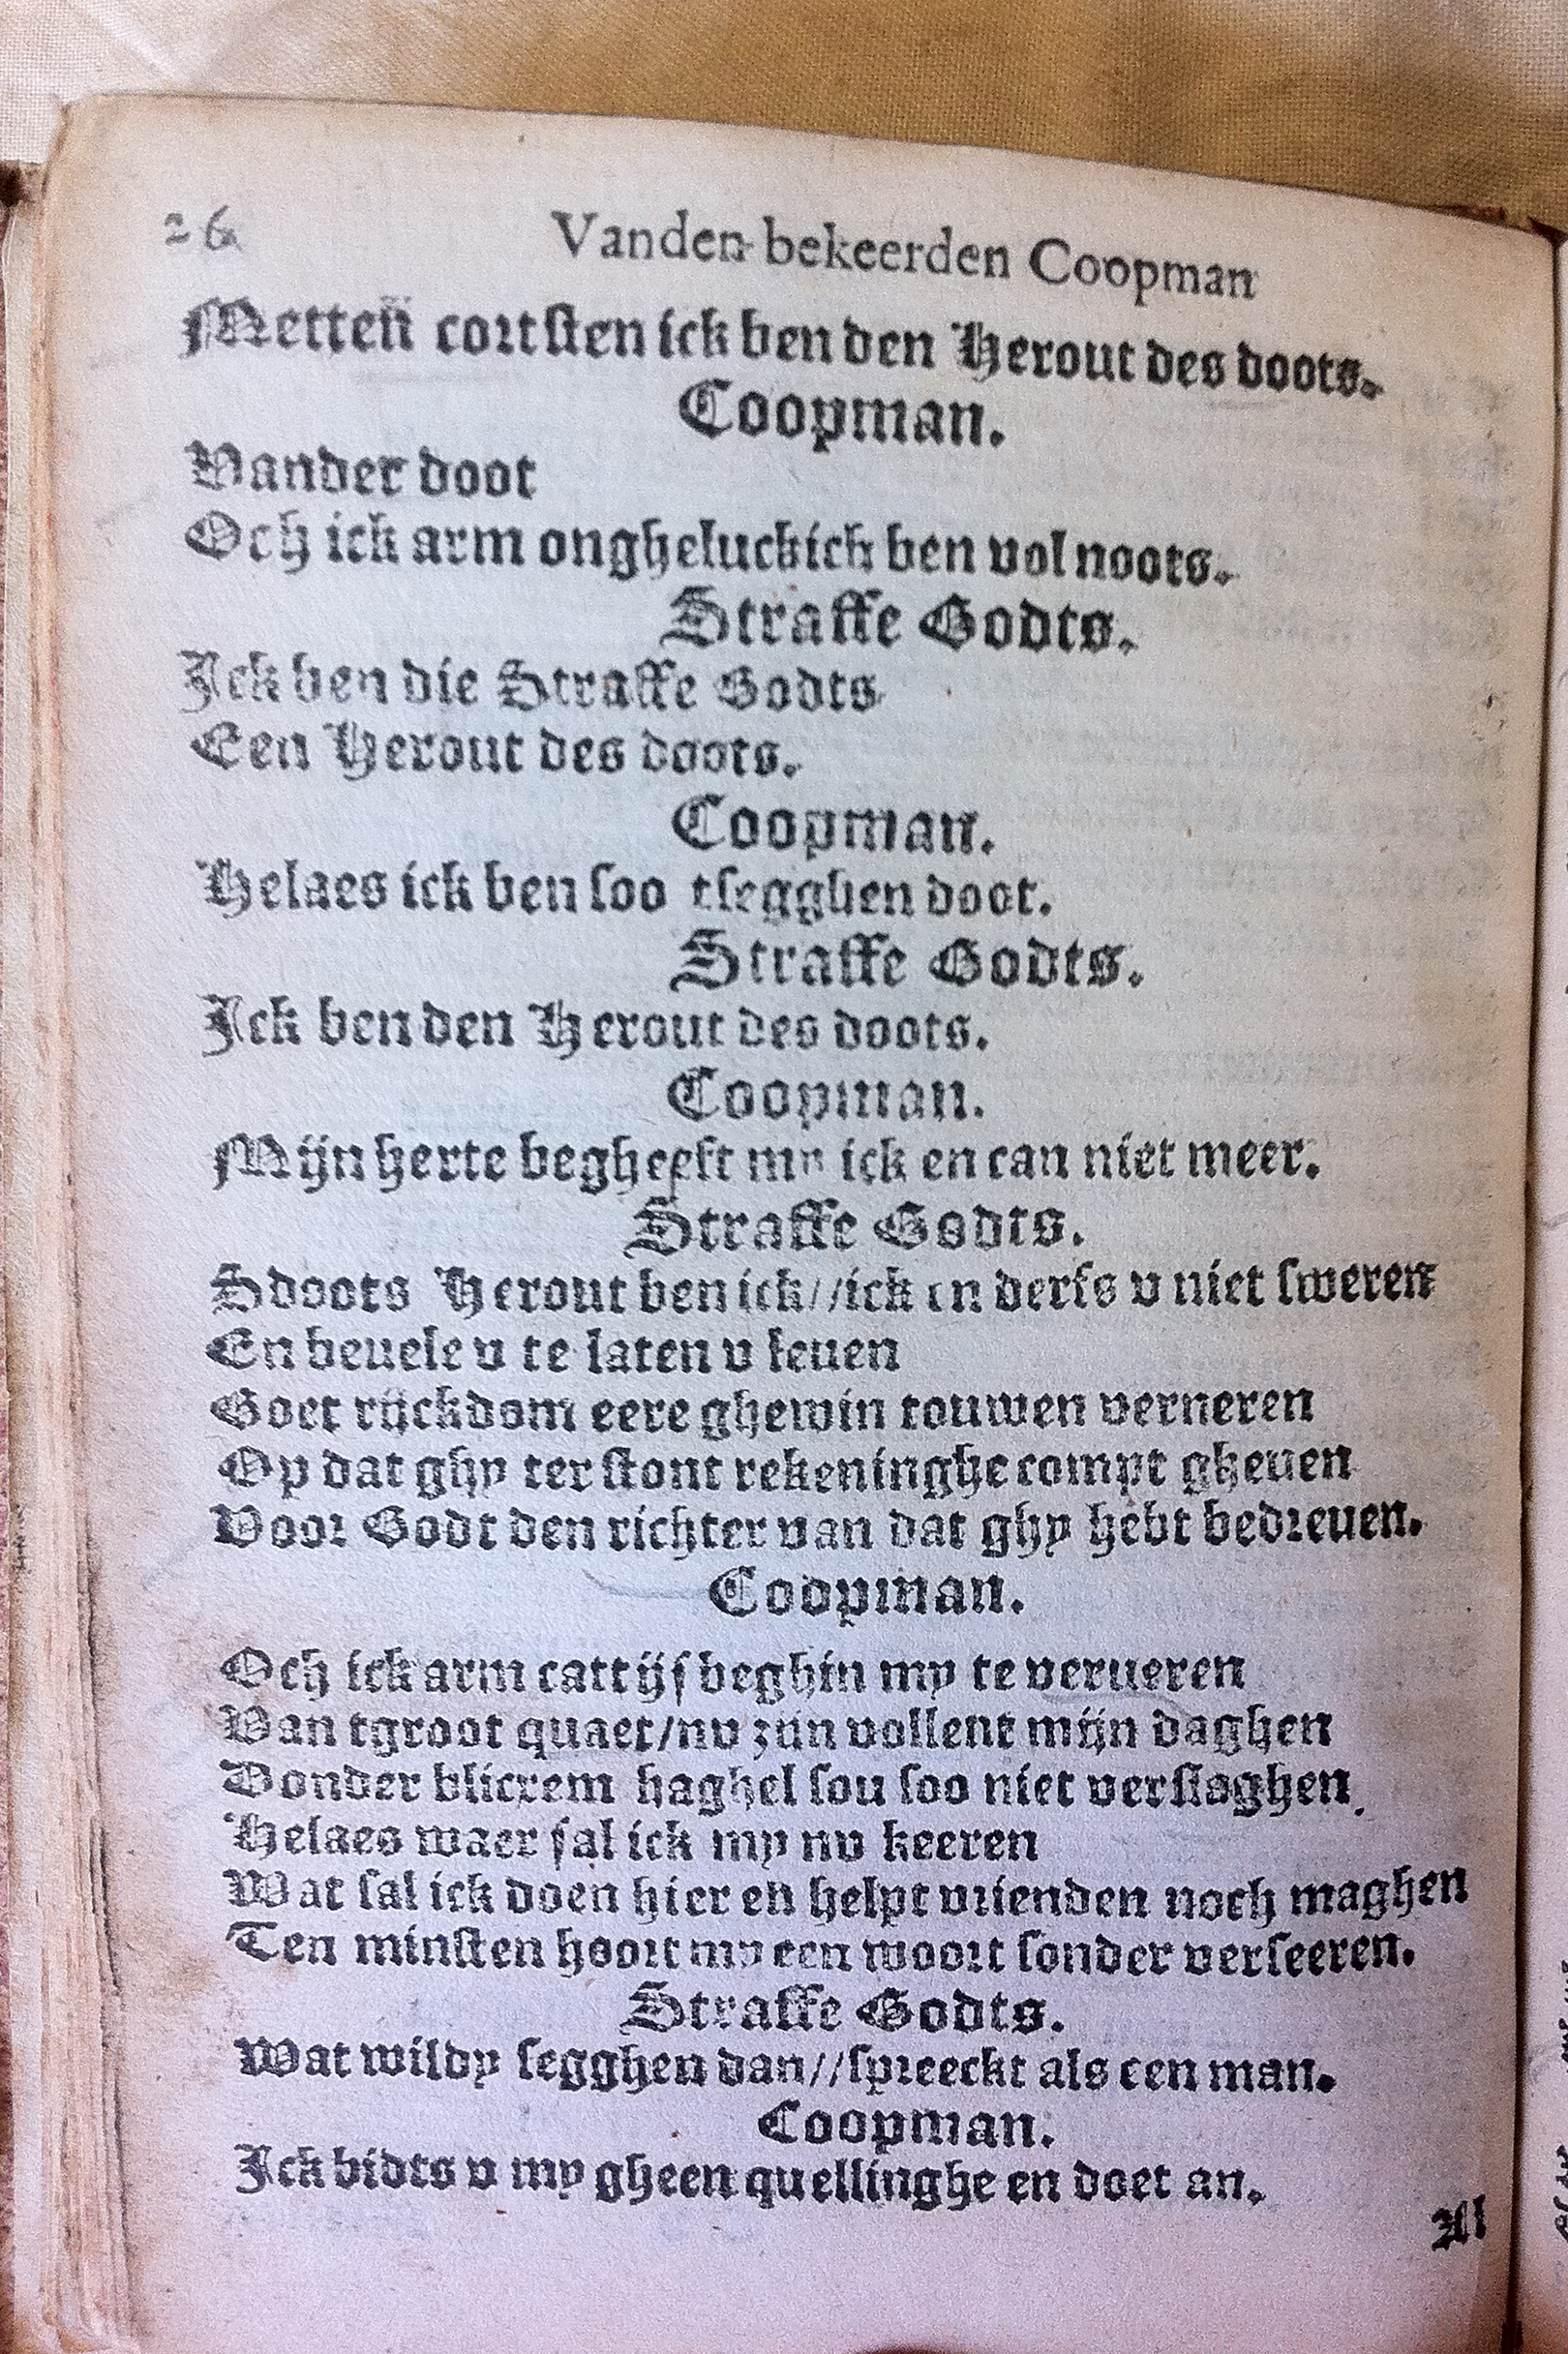 26 Vanden bekeerden Coopman
Metten cortsten ick ben den Herout des doots.
Coopman.
Vander doot
Och ick arm ongheluckich ben vol noots.
Straffe Godts.
Ick ben die Straffe Godts
Een Herout des doots.
Coopman.
Helaes ick ben soo tsegghen doot.
Straffe Godts.
Ick ben den Herout des doots.
Coopman.
Mijn herte begheeft my ick en can niet meer.
Straffe Godts.
Sdoots Herout ben ick//ick en derfs v niet sweren
En beuele v te laten v leuen
Goet rijckdom eere ghewin touwen verneren
Op dat ghy ter stont rekeninghe compt gheuen
Voor Godt den richter van dat ghy hebt bedreuen.
Coopman.
Och ick arm cattijf beghin my te verueren
Van tgroot quaet/nv zijn vollent mijn daghen
Donder blicxem haghel sou soo niet verslaghen.
Helaes waer sal ick my nv keeren
Wat sal ick doen hier en helpt vrienden noch maghen
Ten minsten hoort my een woort sonder verseeren.
Straffe Godts.
Wat wildy segghen dan//spreeckt als een man.
Coopman.
Ick bidts v my gheen quellinghe en doet an.
Al